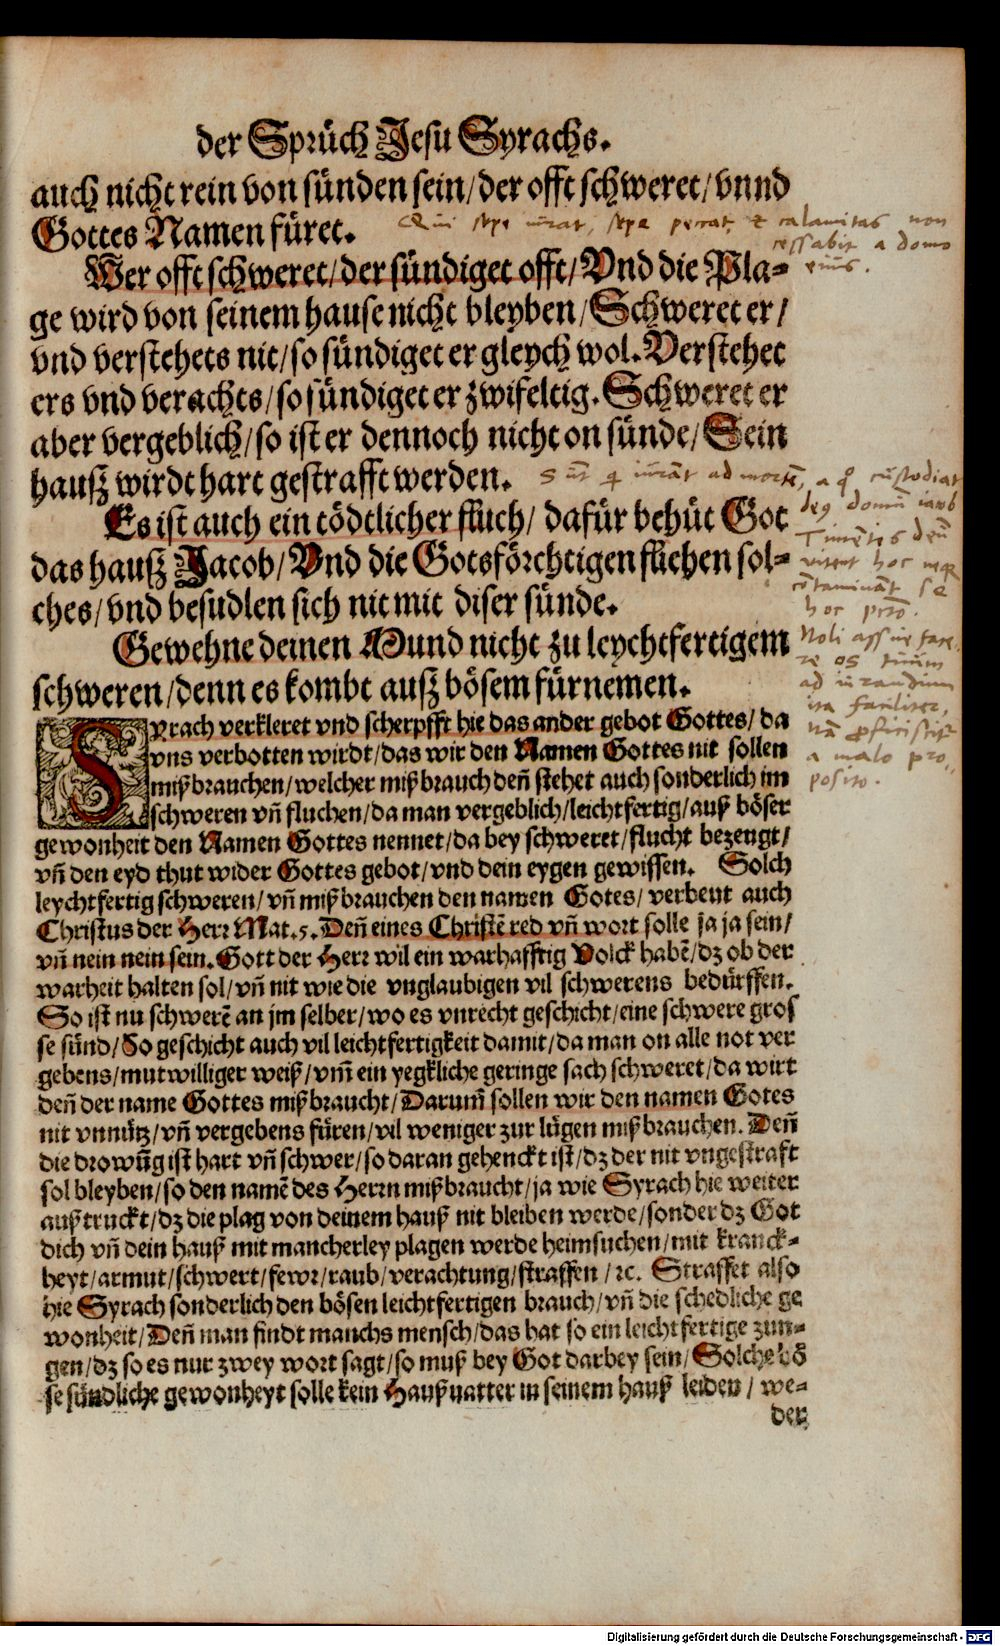 der Sprüch Jesu Syrachs.
auch nicht rein von sünden sein/der offt schweret/vnnd
Gottes Namen füret.
Qui sepe iurat, sepe peccat, et calamitas non
cessabit a domo
eius.
Wer offt schweret/der sündiget offt/Vnd die Pla=
ge wird von seinem hause nicht bleyben/Schweret er/
vnd verstehets nit/so sündiget er gleych wol. Verstehet
ers vnd verachts/so sündiget er zwifeltig. Schweret er
aber vergeblich/so ist er dennoch nicht on sünde/Sein
hausz wirdt hart gestrafft werden.
Es ist auch ein tödtlicher fluch/ dafür behüt Got
das hausz Jacob/Vnd die Gotsförchtigen fliehen sol=
ches/vnd besudlen sich nit mit diser sünde.
Sūt q̄ iurāt ad mortē, a q̊ custodiat
deꝰ domū iacob
Timētes deū
vitent hoc neque
cōtamināt se
hoc pctō.
Gewehne deinen Mund nicht zu leychtfertigem
schweren/denn es kombt ausz bösem fürnemen.
Noli assue face-
re os tuum
ad iurandum
ita faciliter,
nā proficiscitur
a malo pro-
posito.
SYrach verkleret vnd scherpfft hie das ander gebot Gottes/da
vns verbotten wirdt/das wir den Namen Gottes nit sollen
mißbrauchen/welcher mißbrauch deñ stehet auch sonderlich im
schweren vñ fluchen/da man vergeblich/leichtfertig/auß böser
gewonheit den Namen Gottes nennet/da bey schweret/flucht bezeugt/
vñ den eyd thut wider Gottes gebot/vnd dein eygen gewissen. Solch
leychtfertig schweren/vñ mißbrauchen den namen Gotes/verbeut auch
Christus der Herr Mat.5. Deñ eines Christē red vñ wort solle ja ja sein/
vñ nein nein sein. Gott der Herr wil ein warhafftig Volck habē/dz ob der
warheit halten sol/vñ nit wie die vnglaubigen vil schwerens bedürffen.
So ist nu schwerē an jm selber/wo es vnrecht geschicht/eine schwere gros
se sünd/So geschicht auch vil leichtfertigkeit damit/da man on alle not ver
gebens/mutwilliger weiß/vm̃ ein yegkliche geringe sach schweret/da wirt
deñ der name Gottes mißbraucht/Darum̃ sollen wir den namen Gotes
nit vnnütz/vñ vergebens füren/vil weniger zur lügen mißbrauchen. Deñ
die drowũg ist hart vñ schwer/so daran gehenckt ist/dz der nit vngestraft
sol bleyben/so den namē des Herrn mißbraucht/ja wie Syrach hie weiter
außtruckt/dz die plag von deinem hauß nit bleiben werde/sonder dz Got
dich vñ dein hauß mit mancherley plagen werde heimsuchen/mit kranck=
heyt/armut/schwert/fewr/raub/verachtung/straffen/ꝛc. Straffet also
hie Syrach sonderlich den bösen leichtfertigen brauch/vñ die schedliche ge
wonheit/Deñ man findt manchs mensch/das hat so ein leichtfertige zun=
gen/dz so es nur zwey wort sagt/so muß bey Got darbey sein/Solche bö
se sündliche gewonheyt solle kein Haußuatter in seinem hauß leiden/we=
der
Digitalisierung gefördert durch die Deutsche Forschungsgemeinschaft - DFG